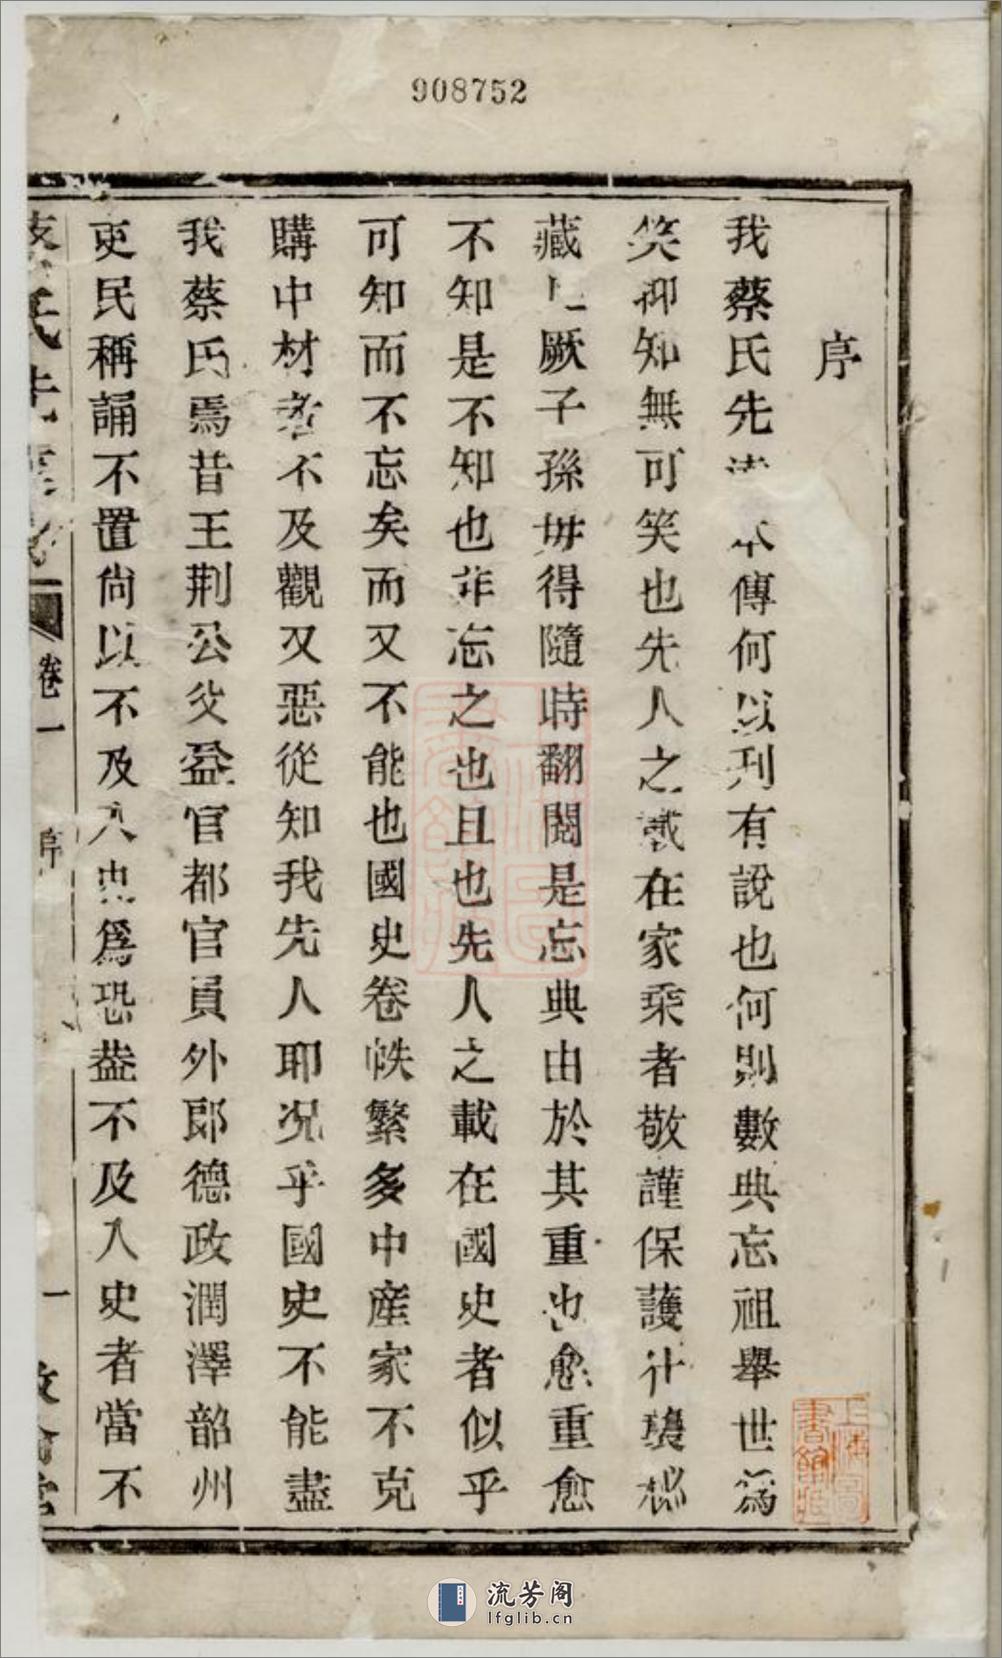 908752
序
我蔡氏先本傳何以刋有說也何則數典忘祖舉世為
笑抑知無可笑也先人之載在家乘者敬謹保護什襲
藏厥子孫毋得隨時翻閱是忘典由於其重也愈重愈
不知是不知也非忘之也且也先人之載在國史者似乎
可知而不忘矣而又不能也國史卷帙繁多中產家不克
購中材者不及觀又惡從知我先人耶况乎國史不能盡
我蔡氏焉昔王荆公父益官都官員外郎德政潤澤韶州
吏民稱誦不置尙以不及入史爲恐葢不及入史者當不
蔡氏先
卷一
序
一
上海圖書館藏
上海圖書館藏
流芳阁
lfglib.cn